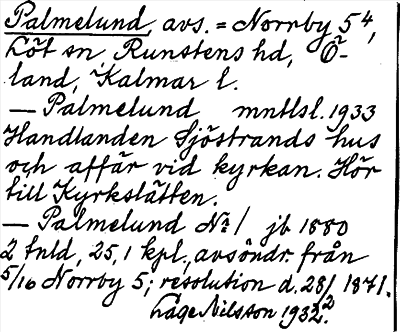 Palmelund, avs. = Norrby 5⁴,
Löt sn, Runstens hd, Ö-
land, Kalmar l.
— Palmelund mntlsl. 1933
Handlanden Sjöstrands hus
och affär vid kyrkan. Hör
till Kyrkslätten.
— Palmelund № 1 jb 1880
2 tnld, 25,1 kpl., avsöndr. från
5/16 Norrby 5; resolution d. 28/2 1871.
Låge Nilsson 1932.